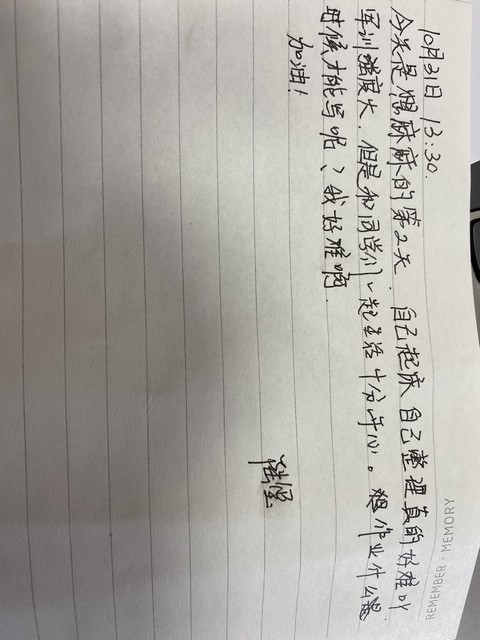 REMEMBER · MEMORY
10月31日 13:30.
今天是想麻麻的第2天. 自己起床 自己整理真的好难吖
军训强度大, 但是和同学们一起生活十分开心。想作业什么
时候才能写呢、我好难啊.
加油!